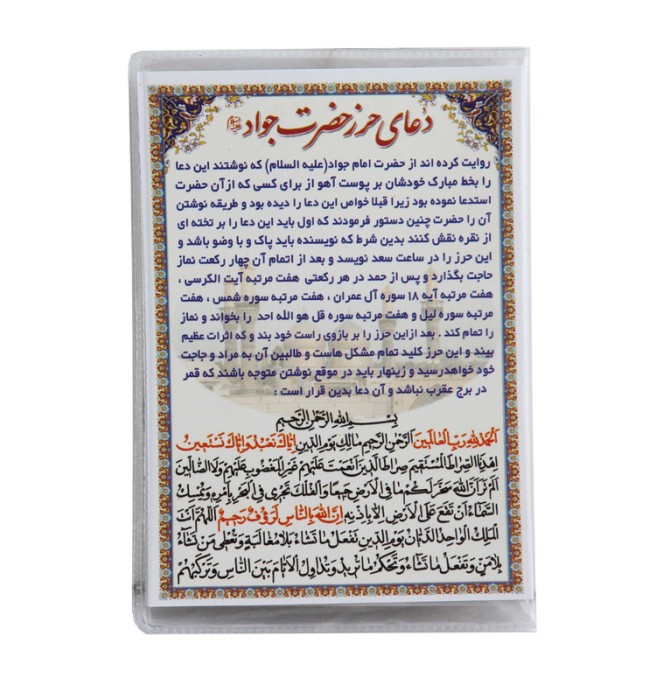 دعای حرز حضرت جواد
روایت کرده اند از حضرت امام جواد(علیه السلام) که نوشتند این دعا
را بخط مبارک خودشان بر پوست آهو از برای کسی که ازآن حضرت
استدعا نموده بود زیرا قبلا خواص این دعا را دیده بود و طریقه نوشتن
آن را حضرت چنین دستور فرمودند که اول باید این دعا را بر تخته ای
از نقره نقش کنند بدین شرط که نویسنده باید پاک و با وضو باشد و
این حرز را در ساعت سعد نویسد و بعد از اتمام آن چهار رکعت نماز
حاجت بگذارد و پس از حمد در هر رکعتی هفت مرتبه آیت الکرسی ،
هفت مرتبه آیه ۱۸ سوره آل عمران ، هفت مرتبه سوره شمس ، هفت
مرتبه سوره لیل و هفت مرتبه سوره قل هو الله احد را بخواند و نماز
را تمام کند . بعد ازاین حرز را بر بازوی راست خود بند و که اثرات عظیم
بیند و این حرز کلید تمام مشکل هاست و طالبین آن به مراد و حاجت
خود خواهدرسید و زینهار باید در موقع نوشتن متوجه باشند که قمر
در برج عقرب نباشد و آن دعا بدین قرار است :
بِسْمِ اللهِ الرَّحْمنِ الرَّحیمِ
اَلْحَمْدُ لِلّهِ رَبِّ الْعالَمینَ اَلرَّحْمنِ الرَّحیمِ مالِكِ یَوْمِ الدّینِ اِیّاكَ نَعْبُدُ وَ اِیّاكَ نَسْتَعینُ
اِهْدِنَا الصِّراطَ الْمُسْتَقیمَ صِراطَ الَّذینَ اَنْعَمْتَ عَلَیْهِمْ غَیْرِ الْمَغْضُوبِ عَلَیْهِمْ وَلَا الضّالّینَ
اَلَمْ تَرَ اَنَّ اللهَ سَخَّرَ لَكُمْ ما فِی الْاَرْضِ جَمیعًا وَ الْفُلْكَ تَجْری فِی الْبَحْرِ بِاَمْرِهِ وَ یُمْسِكُ
السَّماءَ اَنْ تَقَعَ عَلَی الْاَرْضِ اِلّا بِاِذْنِهِ اِنَّ اللهَ بِالنّاسِ لَرَؤُفٌ رَحیمٌ اَللّهُمَّ اَنْتَ
الْمَلِكُ الْواحِدُ الدَّیّانُ یَوْمَ الدّینِ تَفْعَلُ ما تَشاءُ بِلا مُغالَبَةٍ وَ تُعْطی مَنْ تَشاءُ
بِلا مَنٍّ وَ تَفْعَلُ ما تَشاءُ وَ تَحْكُمُ ما تُریدُ وَ تُداوِلُ الْاَیّامَ بَیْنَ النّاسِ وَ تُرَكِّبُهُمْ